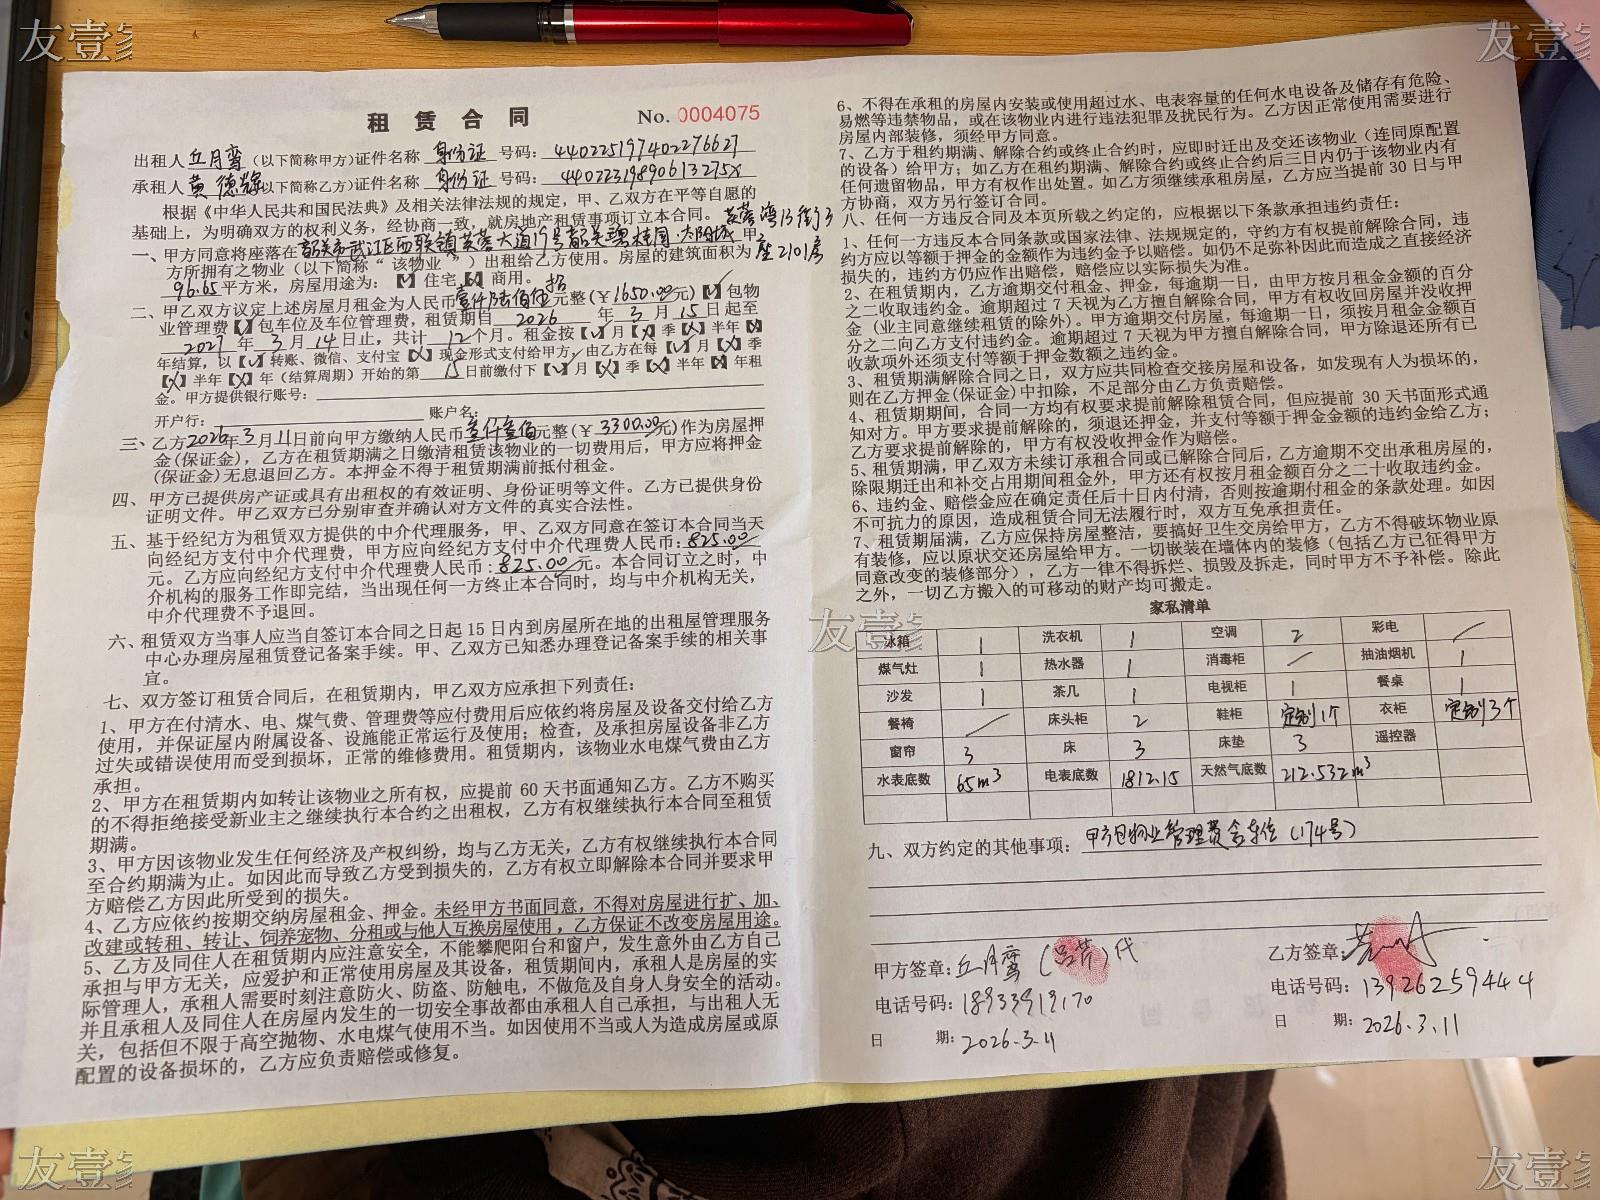 友壹家
友壹家
租赁合同 No. 0004075
出租人丘月鸾(以下简称甲方)证件名称 身份证 号码: 440225197402276627
承租人黄德辉(以下简称乙方)证件名称 身份证 号码: 44022319890613275X
根据《中华人民共和国民法典》及相关法律法规的规定，甲、乙双方在平等自愿的
基础上，为明确双方的权利义务，经协商一致，就房地产租赁事项订立本合同。芙蓉湾13街3
一、甲方同意将座落在韶关市武江区西联镇芙蓉大道19号韶关碧桂园·太阳城 甲
座2101房
方所拥有之物业(以下简称“该物业”)出租给乙方使用。房屋的建筑面积为
96.65平方米，房屋用途为:【】住宅【】商用。
二、甲乙双方议定上述房屋月租金为人民币壹仟陆佰伍拾元整(￥1650.00元)【√】包物
业管理费【】包车位及车位管理费，租赁期自 2026 年 3 月 15 日起至
2027 年 3 月 14 日止，共计 12 个月。租金按【√】月【X】季【X】半年【X】
年结算，以【√】转账、微信、支付宝【X】现金形式支付给甲方，由乙方在每【√】月【X】季
【X】半年【X】年(结算周期)开始的第 15 日前缴付下【√】月【X】季【X】半年【X】年租
金。甲方提供银行账号:
开户行: 账户名:
三、乙方2026年3月11日前向甲方缴纳人民币叁仟叁佰元整(￥ 3300.00元)作为房屋押
金(保证金)，乙方在租赁期满之日缴清租赁该物业的一切费用后，甲方应将押金
(保证金)无息退回乙方。本押金不得于租赁期满前抵付租金。
四、甲方已提供房产证或具有出租权的有效证明、身份证明等文件。乙方已提供身份
证明文件。甲乙双方已分别审查并确认对方文件的真实合法性。
五、基于经纪方为租赁双方提供的中介代理服务，甲、乙双方同意在签订本合同当天
向经纪方支付中介代理费，甲方应向经纪方支付中介代理费人民币:825.00
元。乙方应向经纪方支付中介代理费人民币:825.00元。本合同订立之时，中
介机构的服务工作即完结，当出现任何一方终止本合同时，均与中介机构无关，
中介代理费不予退回。
六、租赁双方当事人应当自签订本合同之日起 15 日内到房屋所在地的出租屋管理服务
中心办理房屋租赁登记备案手续。甲、乙双方已知悉办理登记备案手续的相关事
宜。
七、双方签订租赁合同后，在租赁期内，甲乙双方应承担下列责任:
1、甲方在付清水、电、煤气费、管理费等应付费用后应依约将房屋及设备交付给乙方
使用，并保证屋内附属设备、设施能正常运行及使用；检查，及承担房屋设备非乙方
过失或错误使用而受到损坏，正常的维修费用。租赁期内，该物业水电煤气费由乙方
承担。
2、甲方在租赁期内如转让该物业之所有权，应提前 60 天书面通知乙方。乙方不购买
的不得拒绝接受新业主之继续执行本合约之出租权，乙方有权继续执行本合同至租赁
期满。
3、甲方因该物业发生任何经济及产权纠纷，均与乙方无关，乙方有权继续执行本合同
至合约期满为止。如因此而导致乙方受到损失的，乙方有权立即解除本合同并要求甲
方赔偿乙方因此所受到的损失。
4、乙方应依约按期交纳房屋租金、押金。未经甲方书面同意，不得对房屋进行扩、加、
改建或转租、转让、饲养宠物、分租或与他人互换房屋使用，乙方保证不改变房屋用途。
5、乙方及同住人在租赁期内应注意安全，不能攀爬阳台和窗户，发生意外由乙方自己
承担与甲方无关，应爱护和正常使用房屋及其设备，租赁期间内，承租人是房屋的实
际管理人，承租人需要时刻注意防火、防盗、防触电，不做危及自身人身安全的活动。
并且承租人及同住人在房屋内发生的一切安全事故都由承租人自己承担，与出租人无
关，包括但不限于高空抛物、水电煤气使用不当。如因使用不当或人为造成房屋或原
配置的设备损坏的，乙方应负责赔偿或修复。
6、不得在承租的房屋内安装或使用超过水、电表容量的任何水电设备及储存有危险、
易燃等违禁物品，或在该物业内进行违法犯罪及扰民行为。乙方因正常使用需要进行
房屋内部装修，须经甲方同意。
7、乙方于租约期满、解除合约或终止合约时，应即时迁出及交还该物业(连同原配置
的设备)给甲方；如乙方在租约期满、解除合约或终止合约后三日内仍于该物业内有
任何遗留物品，甲方有权作出处置。如乙方须继续承租房屋，乙方应当提前 30 日与甲
方协商，双方另行签订合同。
八、任何一方违反合同及本页所载之约定的，应根据以下条款承担违约责任:
1、任何一方违反本合同条款或国家法律、法规规定的，守约方有权提前解除合同，违
约方应以等额于押金的金额作为违约金予以赔偿。如仍不足弥补因此而造成之直接经济
损失的，违约方仍应作出赔偿，赔偿应以实际损失为准。
2、在租赁期内，乙方逾期交付租金、押金，每逾期一日，由甲方按月租金金额的百分
之二收取违约金。逾期超过 7 天视为乙方擅自解除合同，甲方有权收回房屋并没收押
金(业主同意继续租赁的除外)。甲方逾期交付房屋，每逾期一日，须按月租金金额百
分之二向乙方支付违约金。逾期超过 7 天视为甲方擅自解除合同，甲方除退还所有已
收款项外还须支付等额于押金数额之违约金。
3、租赁期满解除合同之日，双方应共同检查交接房屋和设备，如发现有人为损坏的，
则在乙方押金(保证金)中扣除，不足部分由乙方负责赔偿。
4、租赁期期间，合同一方均有权要求提前解除租赁合同，但应提前 30 天书面形式通
知对方。甲方要求提前解除的，须退还押金，并支付等额于押金金额的违约金给乙方；
乙方要求提前解除的，甲方有权没收押金作为赔偿。
5、租赁期满，甲乙双方未续订承租合同或已解除合同后，乙方逾期不交出承租房屋的，
除限期迁出和补交占用期间租金外，甲方还有权按月租金额百分之二十收取违约金。
6、违约金、赔偿金应在确定责任后十日内付清，否则按逾期付租金的条款处理。如因
不可抗力的原因，造成租赁合同无法履行时，双方互免承担责任。
7、租赁期届满，乙方应保持房屋整洁，要搞好卫生交房给甲方，乙方不得破坏物业原
有装修，应以原状交还房屋给甲方。一切嵌装在墙体内的装修(包括乙方已征得甲方
同意改变的装修部分)，乙方一律不得拆烂、损毁及拆走，同时甲方不予补偿。除此
之外，一切乙方搬入的可移动的财产均可搬走。
友壹家
家私清单
冰箱 1 洗衣机 1 空调 2 彩电 /
煤气灶 1 热水器 1 消毒柜 / 抽油烟机 1
沙发 1 茶几 1 电视柜 1 餐桌 1
餐椅 / 床头柜 2 鞋柜 定制1个 衣柜 定制3个
窗帘 3 床 3 床垫 3 遥控器
水表底数 65m³ 电表底数 1812.15 天然气底数 212.532m³
九、双方约定的其他事项: 甲方包物业管理费含车位(174号)
甲方签章: 丘月鸾(吕芹)代
电话号码: 18933919170
日 期: 2026.3.11
乙方签章:
电话号码: 13926259444
日 期: 2026.3.11
友壹家
友壹家